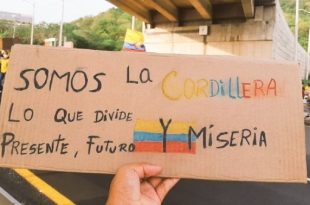 SOMOS LA CORDILLERA
LO QUE DIVIDE
PRESENTE, FUTURO Y MISERIA